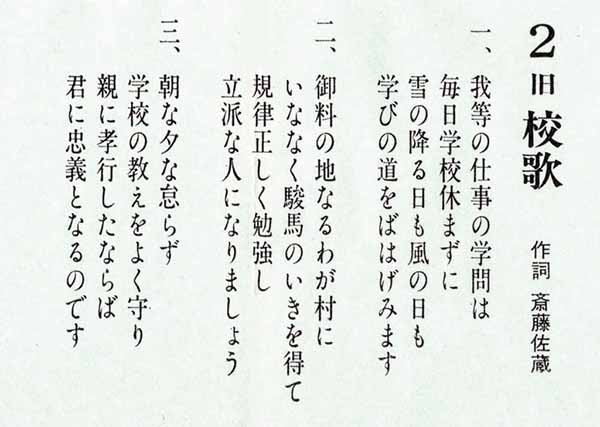 2 旧 校歌
作詞 斎藤佐蔵
一、我等の仕事の学問は
毎日学校休まずに
雪の降る日も風の日も
学びの道をばはげみます
二、御料の地なるわが村に
いななく駿馬のいきを得て
規律正しく勉強し
立派な人になりましょう
三、朝な夕な怠らず
学校の教えをよく守り
親に孝行したならば
君に忠義となるのです